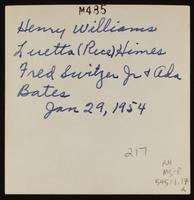 M485
Henry Williams
Luetta (Rice) Himes
Fred Switzer Jr & Ada
Bates
Jan 29, 1954
217
RH
MS-P